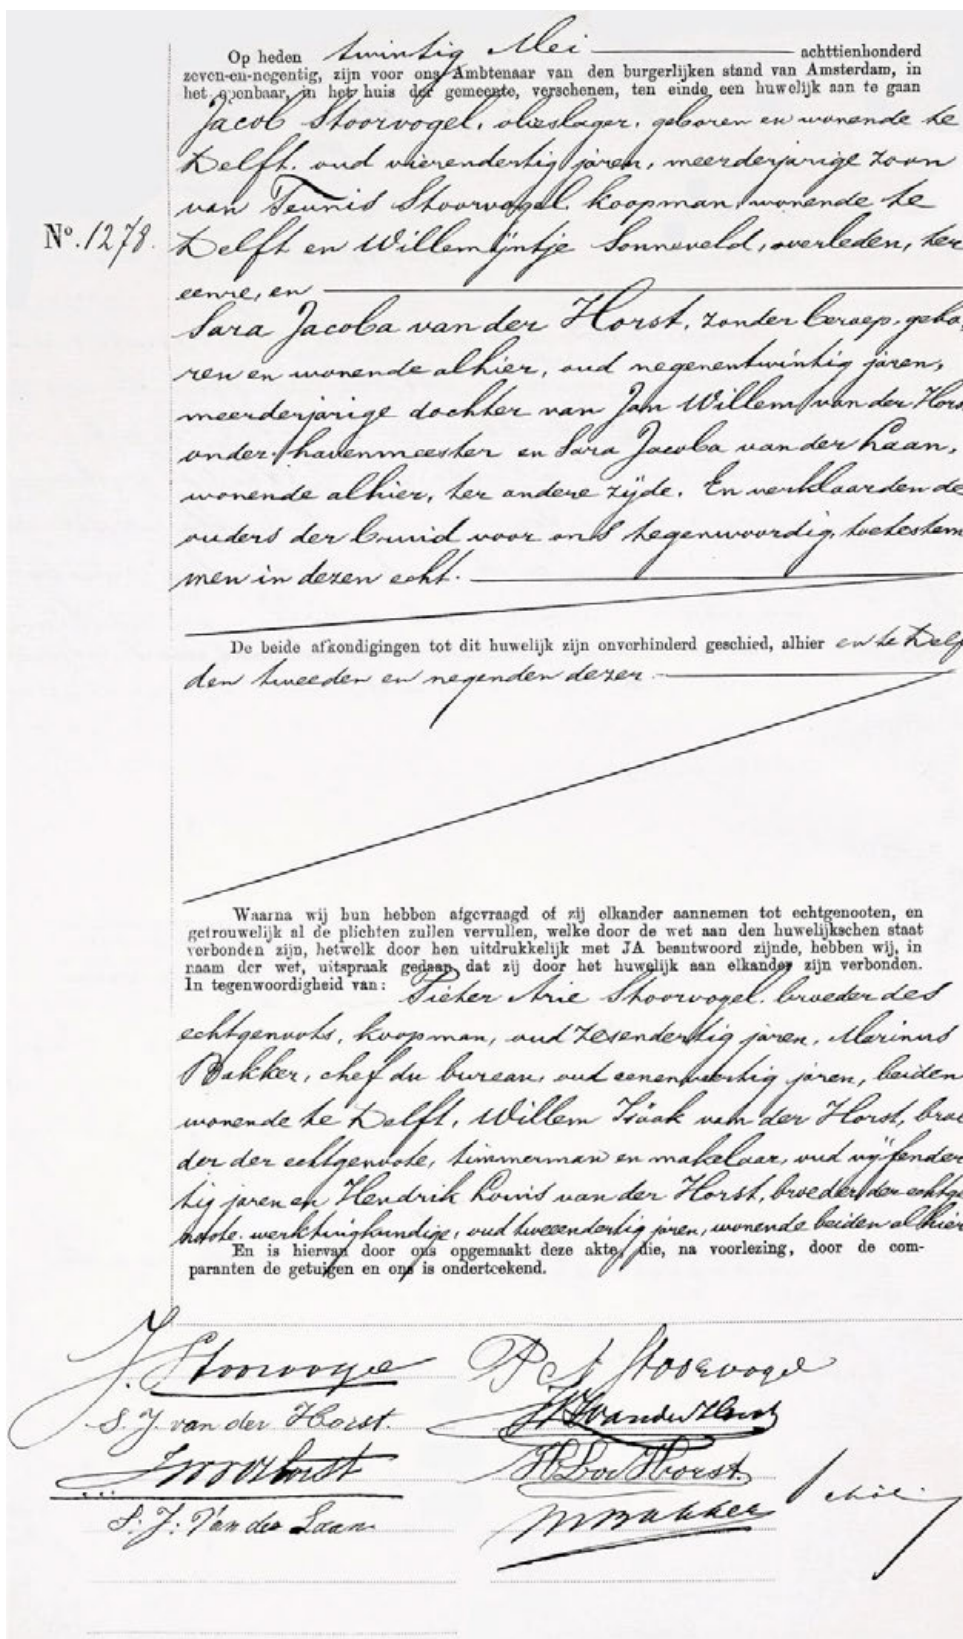 Op heden twintig Mei achttienhonderd
zeven-en-negentig, zijn voor ons Ambtenaar van den burgerlijken stand van Amsterdam, in
het openbaar, in het huis der gemeente, verschenen, ten einde een huwelijk aan te gaan
Jacob Stoorvogel, olieslager, geboren en wonende te
Delft, oud vierendertig jaren, meerderjarige zoon
van Teunis Stoorvogel, koopman, wonende te
No. 1278. Delft en Willemijntje Sonneveld, overleden, ter
eenre, en
Sara Jacoba van der Horst, zonder beroep, gebo-
ren en wonende alhier, oud negenentwintig jaren,
meerderjarige dochter van Jan Willem van der Hors
onder-havenmeester en Sara Jacoba van der Laan,
wonende alhier, ter andere zijde. En verklaarden de
ouders der bruid voor ons tegenwoordig, toetestem
men in dezen echt.
De beide afkondigingen tot dit huwelijk zijn onverhinderd geschied, alhier en te Delf
den tweeden en negenden dezer
Waarna wij hun hebben afgevraagd of zij elkander aannemen tot echtgenooten, en
getrouwelijk al de plichten zullen vervullen, welke door de wet aan den huwelijkschen staat
verbonden zijn, hetwelk door hen uitdrukkelijk met JA beantwoord zijnde, hebben wij, in
naam der wet, uitspraak gedaan dat zij door het huwelijk aan elkander zijn verbonden.
In tegenwoordigheid van: Pieter Arie Stoorvogel, broeder des
echtgenoots, koopman, oud zesendertig jaren, Marinus
Bakker, chef du bureau, oud eenenveertig jaren, beiden
wonende te Delft, Willem Isäak van der Horst, broe
der der echtgenoote, timmerman en makelaar, oud vijfender
tig jaren en Hendrik Louis van der Horst, broeder der echtge
noote, werktuigkundige, oud tweeendertig jaren, wonende beiden alhier
En is hiervan door ons opgemaakt deze akte, die, na voorlezing, door de com-
paranten de getuigen en ons is onderteekend.
J. Stoorvogel P A Stoorvogel
S. J. van der Horst. WI van der Horst
JWvdHorst HLvd Horst.
S. J. Van der Laan MBakker